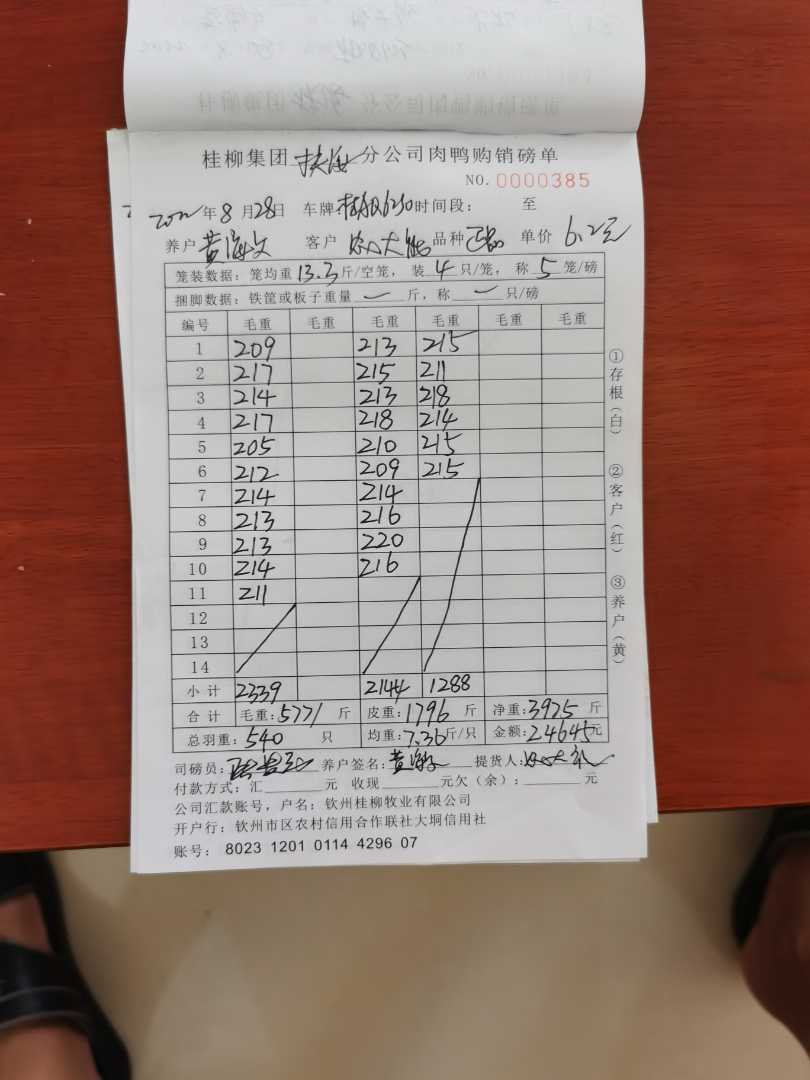 桂柳集团 分公司肉鸭购销磅单
NO. 0000385
2022年8月28日 车牌: 6230时间段: 至
养户 黄海文 客户 品种 正品 单价 6.2元
笼装数据: 笼均重13.3斤/空笼, 装4只/笼, 称5笼/磅
捆脚数据: 铁筐或板子重量 — 斤, 称 — 只/磅
编号 毛重 毛重 毛重 毛重 毛重 毛重
1 209 213 215
2 217 215 211
3 214 213 218
4 217 218 214
5 205 210 215
6 212 209 215
7 214 214
8 213 216
9 213 220
10 214 216
11 211
12
13
14
小计 2339 2144 1288
合计 毛重:5771斤 皮重:1796斤 净重:3975斤
总羽重: 540 只 均重:7.36斤/只 金额:24645元
司磅员: 养户签名: 提货人:
付款方式: 汇 元 收现 元欠(余): 元
公司汇款账号, 户名: 钦州桂柳牧业有限公司
开户行: 钦州市区农村信用合作联社大垌信用社
账号: 8023 1201 0114 4296 07
①存根(白)
②客户(红)
③养户(黄)